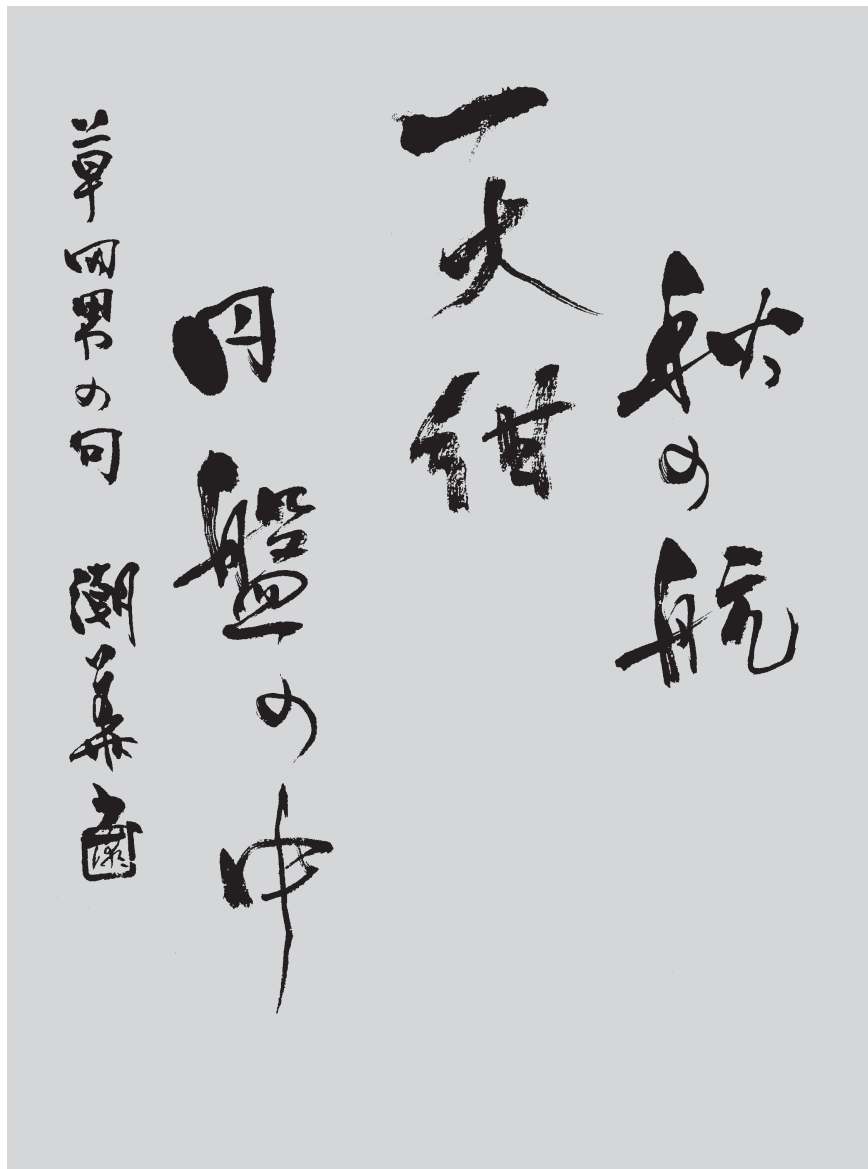 秋の航
一大紺
円盤の中
草田男の句 潮華書